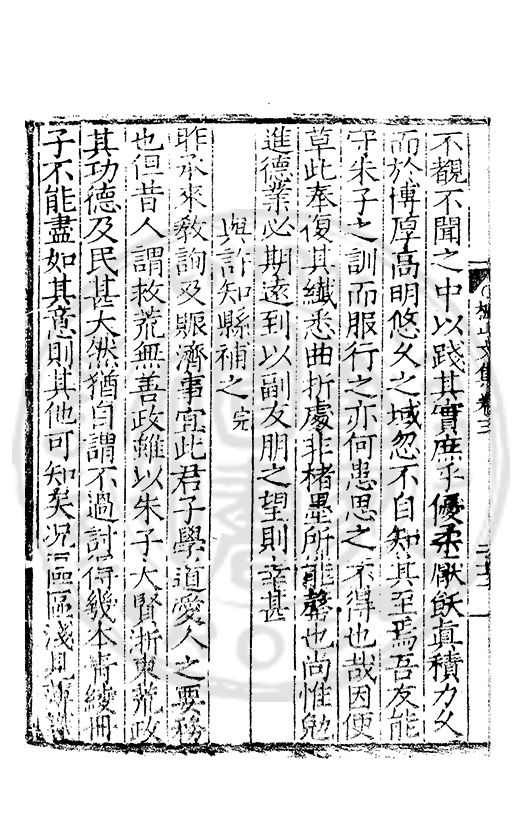 不覩不聞之中以踐其實庶乎優柔厭飫眞積力久
而於博厚高明悠久之域忽不自知其至焉吾友能
守朱子之訓而服行之亦何患思之不得也哉因便
草此奉復其纎悉曲折處非楮墨所能罄也尚惟勉
進德業必期遠到以副友朋之望則幸甚
與許知縣補之完
昨承來敎詢及賑濟事宜此君子學道愛人之要務
也但昔人謂救荒無善政雖以朱子大賢浙東荒政
其功德及民甚大然猶自謂不過討得幾本靑綾冊
子不能盡如其意則其他可知矣况區區淺見
山文集卷三